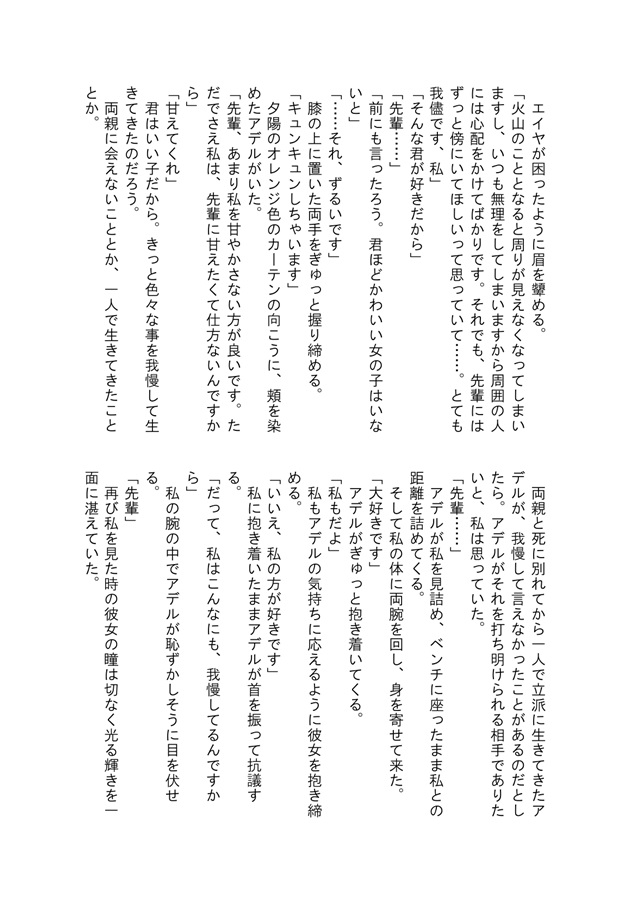 エイヤが困ったように眉を顰める。
「火山のこととなると周りが見えなくなってしまい
ますし、いつも無理をしてしまいますから周囲の人
には心配をかけてばかりです。それでも、先輩には
ずっと傍にいてほしいって思っていて……。とても
我儘です、私」
「そんな君が好きだから」
「先輩……」
「前にも言ったろう。君ほどかわいい女の子はいな
いと」
「……それ、ずるいです」
　膝の上に置いた両手をぎゅっと握り締める。
「キュンキュンしちゃいます」
　夕陽のオレンジ色のカーテンの向こうに、頬を染
めたアデルがいた。
「先輩、あまり私を甘やかさない方が良いです。た
だでさえ私は、先輩に甘えたくて仕方ないんですか
ら」
「甘えてくれ」
　君はいい子だから。きっと色々な事を我慢して生
きてきたのだろう。
　両親に会えないこととか、一人で生きてきたこと
とか。
　両親と死に別れてから一人で立派に生きてきたア
デルが、我慢して言えなかったことがあるのだとし
たら。アデルがそれを打ち明けられる相手でありた
いと、私は思っていた。
「先輩……」
　アデルが私を見詰め、ベンチに座ったまま私との
距離を詰めてくる。
　そして私の体に両腕を回し、身を寄せて来た。
「大好きです」
　アデルがぎゅっと抱き着いてくる。
「私もだよ」
　私もアデルの気持ちに応えるように彼女を抱き締
める。
「いいえ、私の方が好きです」
　私に抱き着いたままアデルが首を振って抗議す
る。
「だって、私はこんなにも、我慢してるんですか
ら」
　私の腕の中でアデルが恥ずかしそうに目を伏せ
る。
「先輩」
　再び私を見た時の彼女の瞳は切なく光る輝きを一
面に湛えていた。